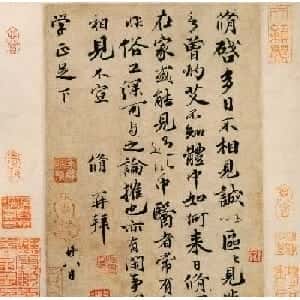 脩啓多日不相見誠以區〻見
言曾灼艾不知體中如何來日脩
在家或能見過此中醫者常有
非俗工深可與之論攉也亦有閑事
相見不宣 脩再拜 廿八日
學正足下